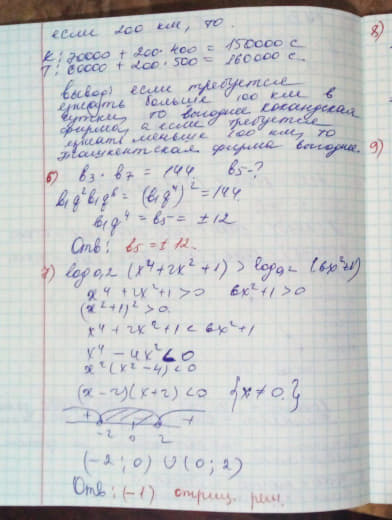 если 200 км, то.
К: 70000 + 200·400 = 150000 с
Т: 60000 + 200·500 = 160000 с.
вывод: если требуется
ездить больше 100 км в
сутки, то выгоднее кокандская
фирма, а если требуется
ездить меньше 100 км, то
ташкентская фирма выгоднее.
6) b₃ · b₇ = 144 b₅-?
b₁q²b₁q⁶ = (b₁q⁴)² = 144
b₁q⁴ = b₅ = ± 12
Отв: b₅ = ± 12.
7) log₀,₂ (x⁴+2x²+1) > log₀,₂ (6x²+1)
x⁴ + 2x²+1 > 0 6x²+1 > 0
(x²+1)² > 0
x⁴ + 2x²+1 < 6x²+1
x⁴ - 4x² < 0
x²(x²-4) < 0
(x-2)(x+2) < 0 {x ≠ 0.}
+ - +
-2 0 2
(-2; 0) ∪ (0; 2)
Отв: (-1) отриц. реш.
8)
9)